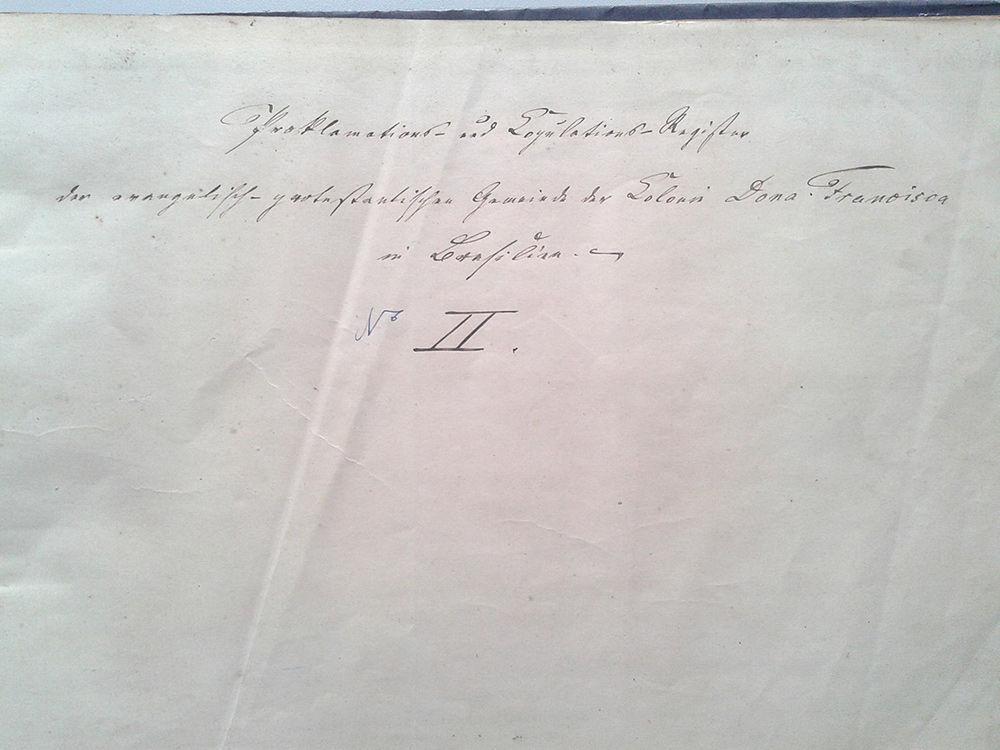 Proklamations- und Copulations-Register
der evangelisch-protestantischen Gemeinde der Colonie Dona Francisca
in Brasilien.
No II.